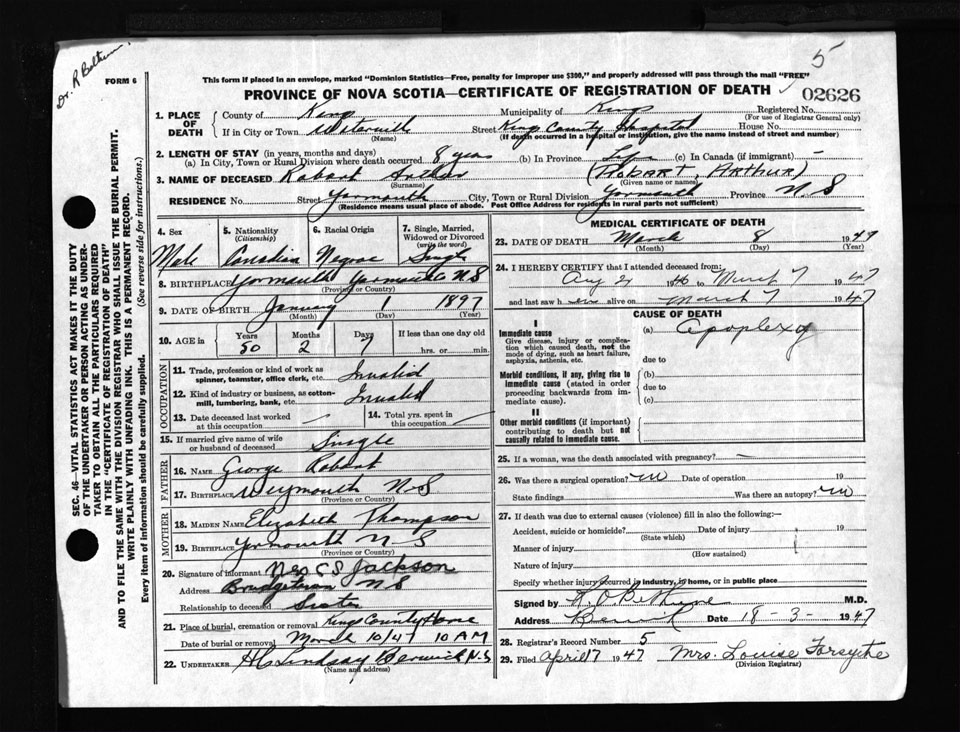 Dr. R Bethune
5
FORM 6
This form if placed in an envelope, marked "Dominion Statistics—Free, penalty for improper use $300," and properly addressed will pass through the mail "FREE"
PROVINCE OF NOVA SCOTIA—CERTIFICATE OF REGISTRATION OF DEATH
02626
SEC. 46—VITAL STATISTICS ACT MAKES IT THE DUTY
OF THE UNDERTAKER OR PERSON ACTING AS UNDER-
TAKER TO OBTAIN ALL THE PARTICULARS REQUIRED
IN THE "CERTIFICATE OF REGISTRATION OF DEATH"
AND TO FILE THE SAME WITH THE DIVISION REGISTRAR WHO SHALL ISSUE THE BURIAL PERMIT.
WRITE PLAINLY WITH UNFADING INK. THIS IS A PERMANENT RECORD.
Every item of information should be carefully supplied. (See reverse side for instructions.)
1. PLACE OF DEATH County of Kings Municipality of Kings Registered No.
(For use of Registrar General only)
If in City or Town Waterville Street Kings County Hospital House No.
(Name) (If death occurred in a hospital or institution, give the name instead of street and number)
2. LENGTH OF STAY (in years, months and days)
(a) In City, Town or Rural Division where death occurred 8 years (b) In Province Life (c) In Canada (if immigrant) —
3. NAME OF DECEASED Robart Arthur (HOBART, ARTHUR)
(Surname) (Given name or names)
RESIDENCE No. Street Yarmouth City, Town or Rural Division Yarmouth Province N S
(Residence means usual place of abode. Post Office Address for residents in rural parts not sufficient)
4. Sex 5. Nationality (Citizenship) 6. Racial Origin 7. Single, Married, Widowed or Divorced (write the word)
Male Canadian Negroe Single
8. BIRTHPLACE Yarmouth Yarmouth N S
(Province or Country)
9. DATE OF BIRTH January 1 1897
(Month) (Day) (Year)
10. AGE in Years Months Days If less than one day old
50 2 7 hrs. or min.
OCCUPATION
11. Trade, profession or kind of work as spinner, teamster, office clerk, etc. Invalid
12. Kind of industry or business, as cotton-mill, lumbering, bank, etc. Invalid
13. Date deceased last worked at this occupation 14. Total yrs. spent in this occupation
15. If married give name of wife or husband of deceased Single
FATHER
16. NAME George Robart
17. BIRTHPLACE Weymouth N S
(Province or Country)
MOTHER
18. MAIDEN NAME Elizabeth Thompson
19. BIRTHPLACE Yarmouth N-S
(Province or Country)
20. Signature of informant Mrs C S Jackson
Address Bridgetown N S
Relationship to deceased Sister
21. Place of burial, cremation or removal Kings County Home
Date of burial or removal March 10/47 10 AM
22. UNDERTAKER H C Lindsay Berwick N.S
(Name and address)
MEDICAL CERTIFICATE OF DEATH
23. DATE OF DEATH March 8 1947
(Month) (Day) (Year)
24. I HEREBY CERTIFY that I attended deceased from:
Aug 2 1946 to March 7 1947
and last saw him alive on March 7 1947
CAUSE OF DEATH
I
Immediate cause (a) Apoplexy
Give disease, injury or complica-
tion which caused death, not the
mode of dying, such as heart failure,
asphyxia, asthenia, etc. due to
Morbid conditions, if any, giving rise to (b)
immediate cause (stated in order due to
proceeding backwards from im-
mediate cause). (c)
II
Other morbid conditions (if important)
contributing to death but not
causally related to immediate cause.
25. If a woman, was the death associated with pregnancy? —
26. Was there a surgical operation? no Date of operation 19
State findings Was there an autopsy? no
27. If death was due to external causes (violence) fill in also the following:—
Accident, suicide or homicide? Date of injury 19
(State which)
Manner of injury
(How sustained)
Nature of injury
Specify whether injury occurred in industry, in home, or in public place
Signed by R O Bethune M.D.
Address Berwick Date 18-3-1947
28. Registrar's Record Number 5
29. Filed April 7 1947 Mrs. Louise Forsythe
(Division Registrar)